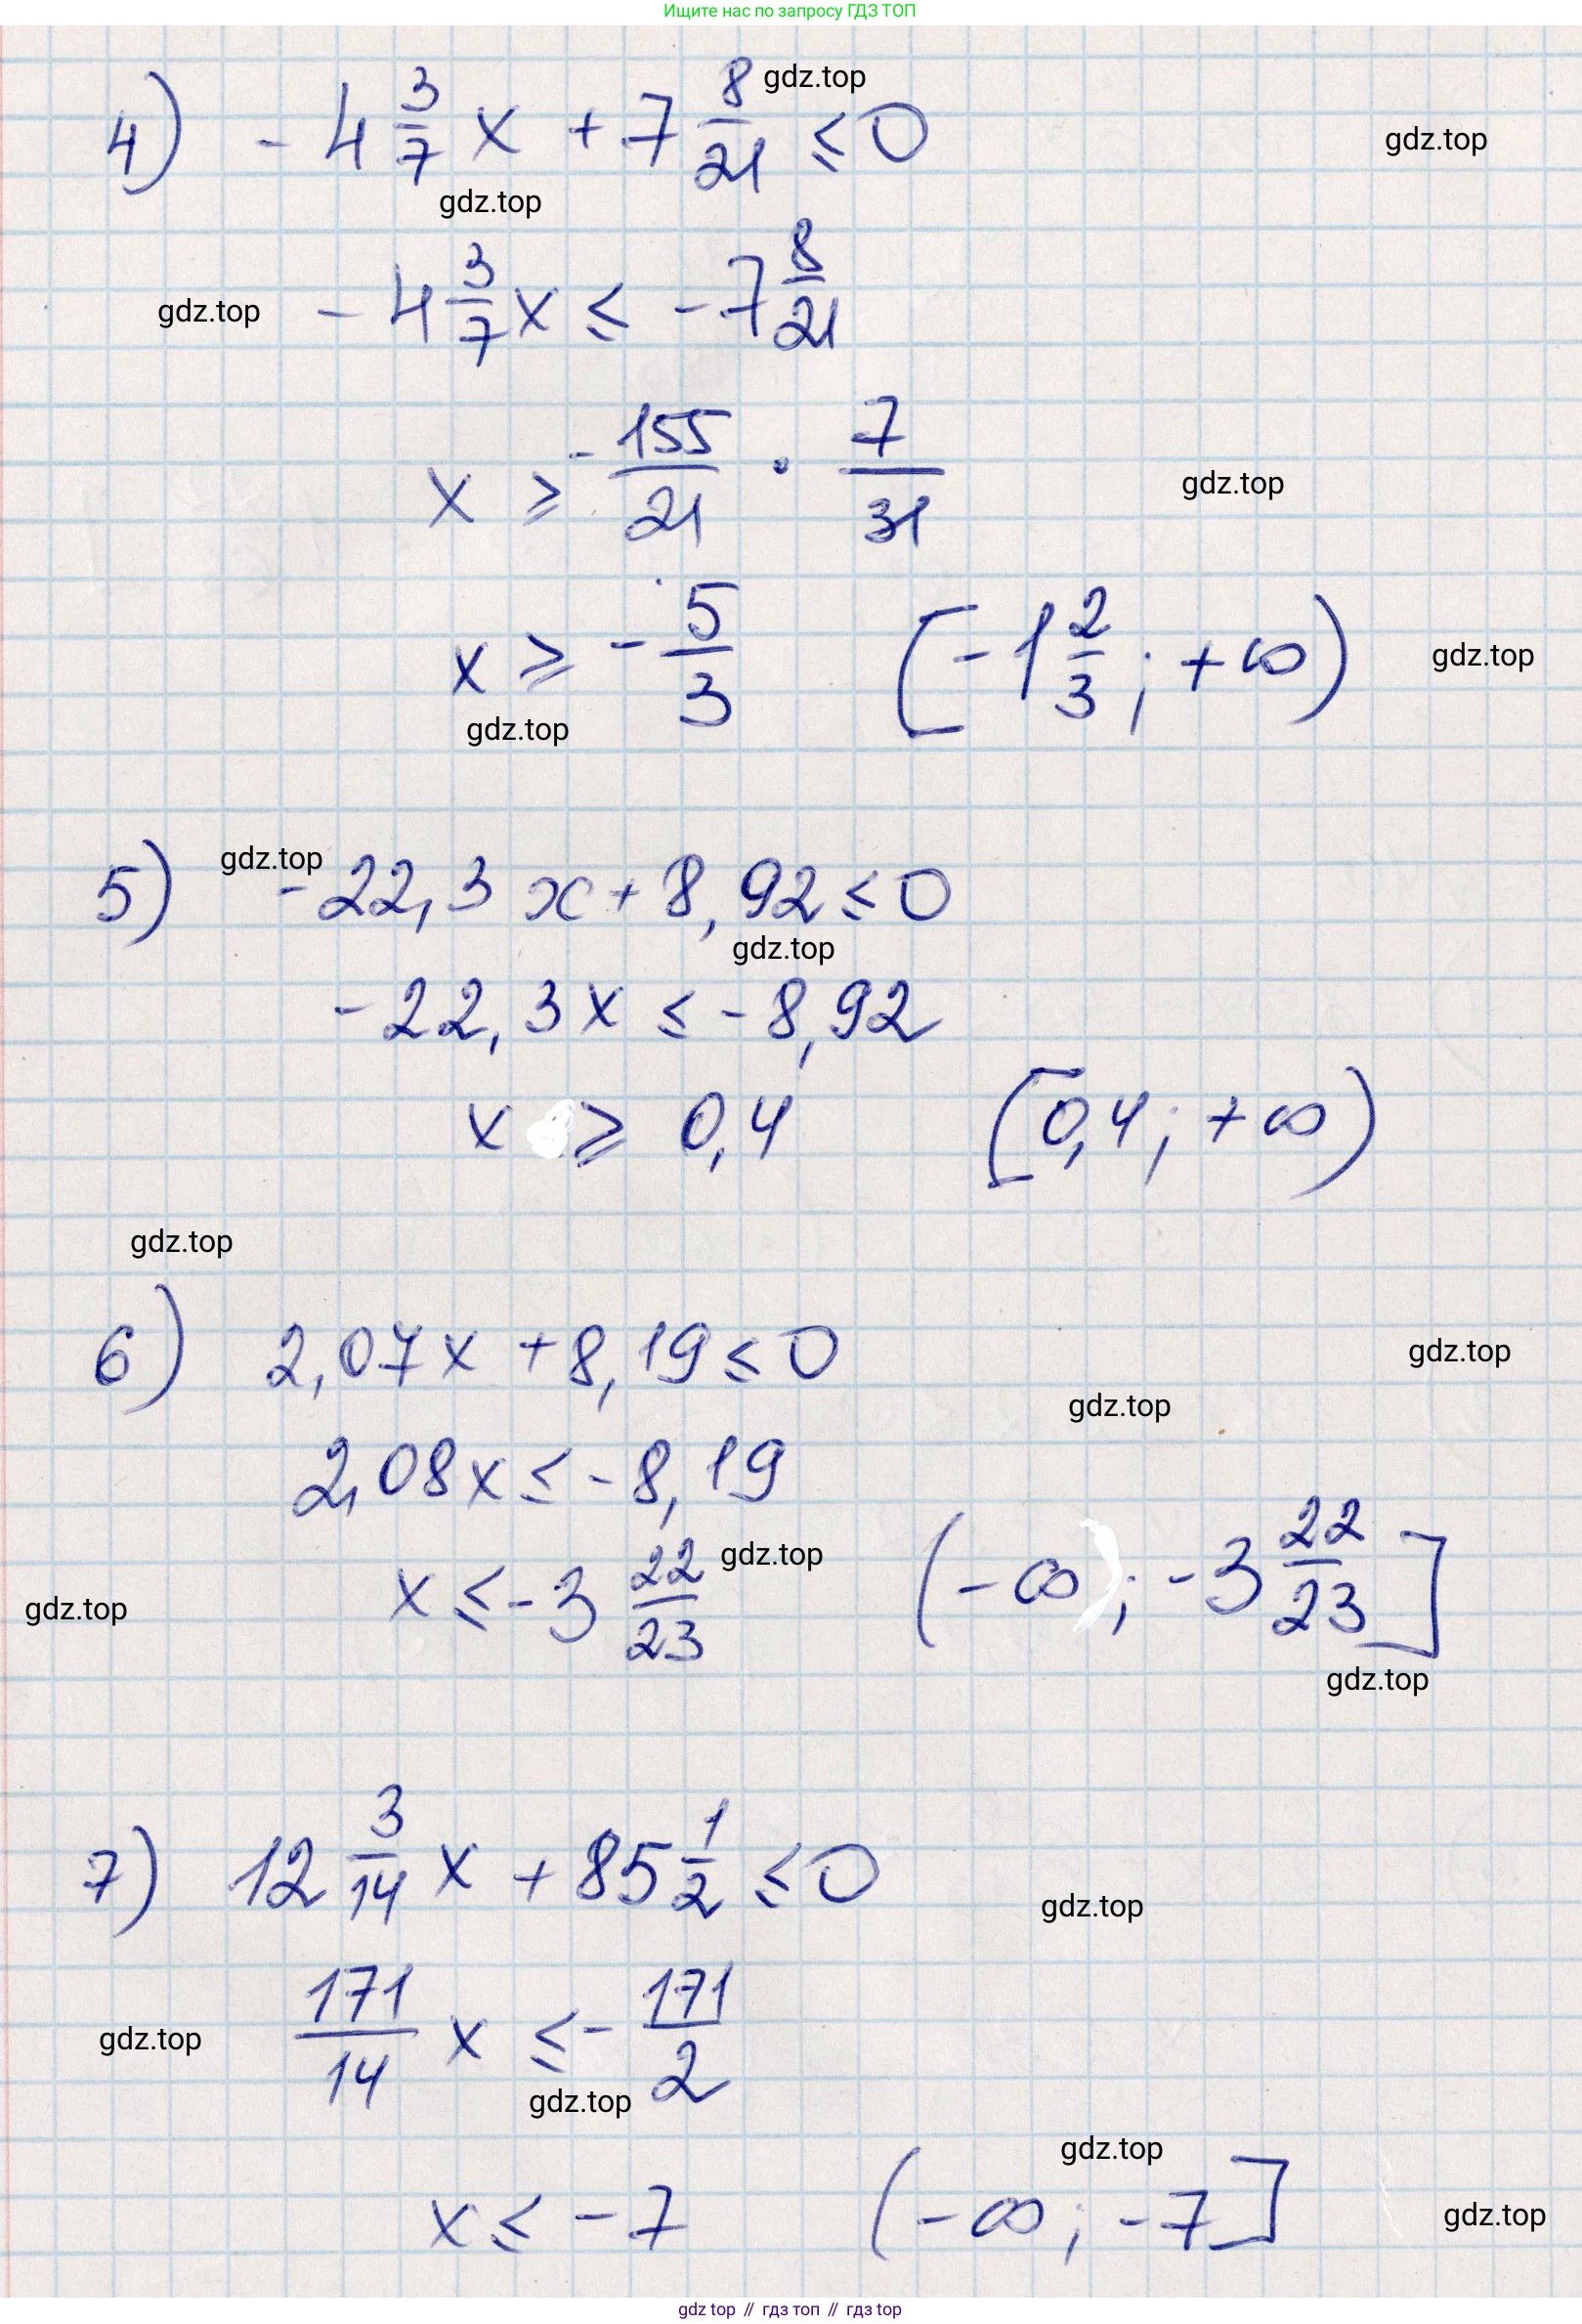 Ищите нас по запросу ГДЗ ТОП
gdz.top
4) -4 3/7 x + 7 8/21 ≤ 0
gdz.top
gdz.top
-4 3/7 x ≤ -7 8/21
gdz.top
x ≥ -155/21 · 7/31
gdz.top
x ≥ -5/3 [-1 2/3; +∞)
gdz.top
gdz.top
gdz.top
5) -22,3x + 8,92 ≤ 0
gdz.top
-22,3x ≤ -8,92
x ≥ 0,4 [0,4; +∞)
gdz.top
6) 2,07x + 8,19 ≤ 0
gdz.top
gdz.top
2,08x ≤ -8,19
gdz.top
x ≤ -3 22/23 (-∞; -3 22/23]
gdz.top
gdz.top
7) 12 3/14 x + 85 1/2 ≤ 0
gdz.top
171/14 x ≤ -171/2
gdz.top
gdz.top
gdz.top
x ≤ -7 (-∞; -7]
gdz.top
gdz top // гдз топ // гдз top